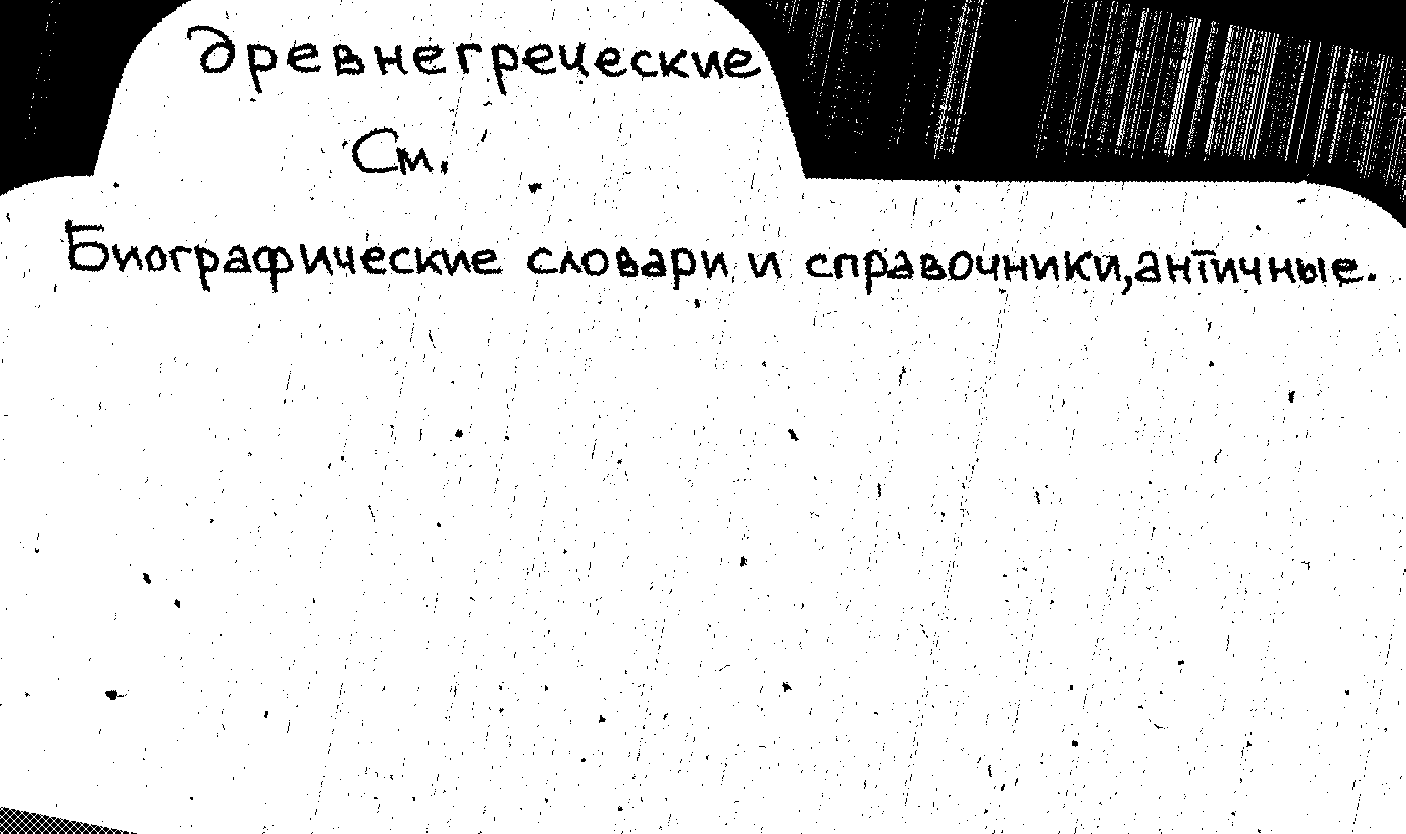 древнегреческие
См.
Биографические словари и справочники, античные.